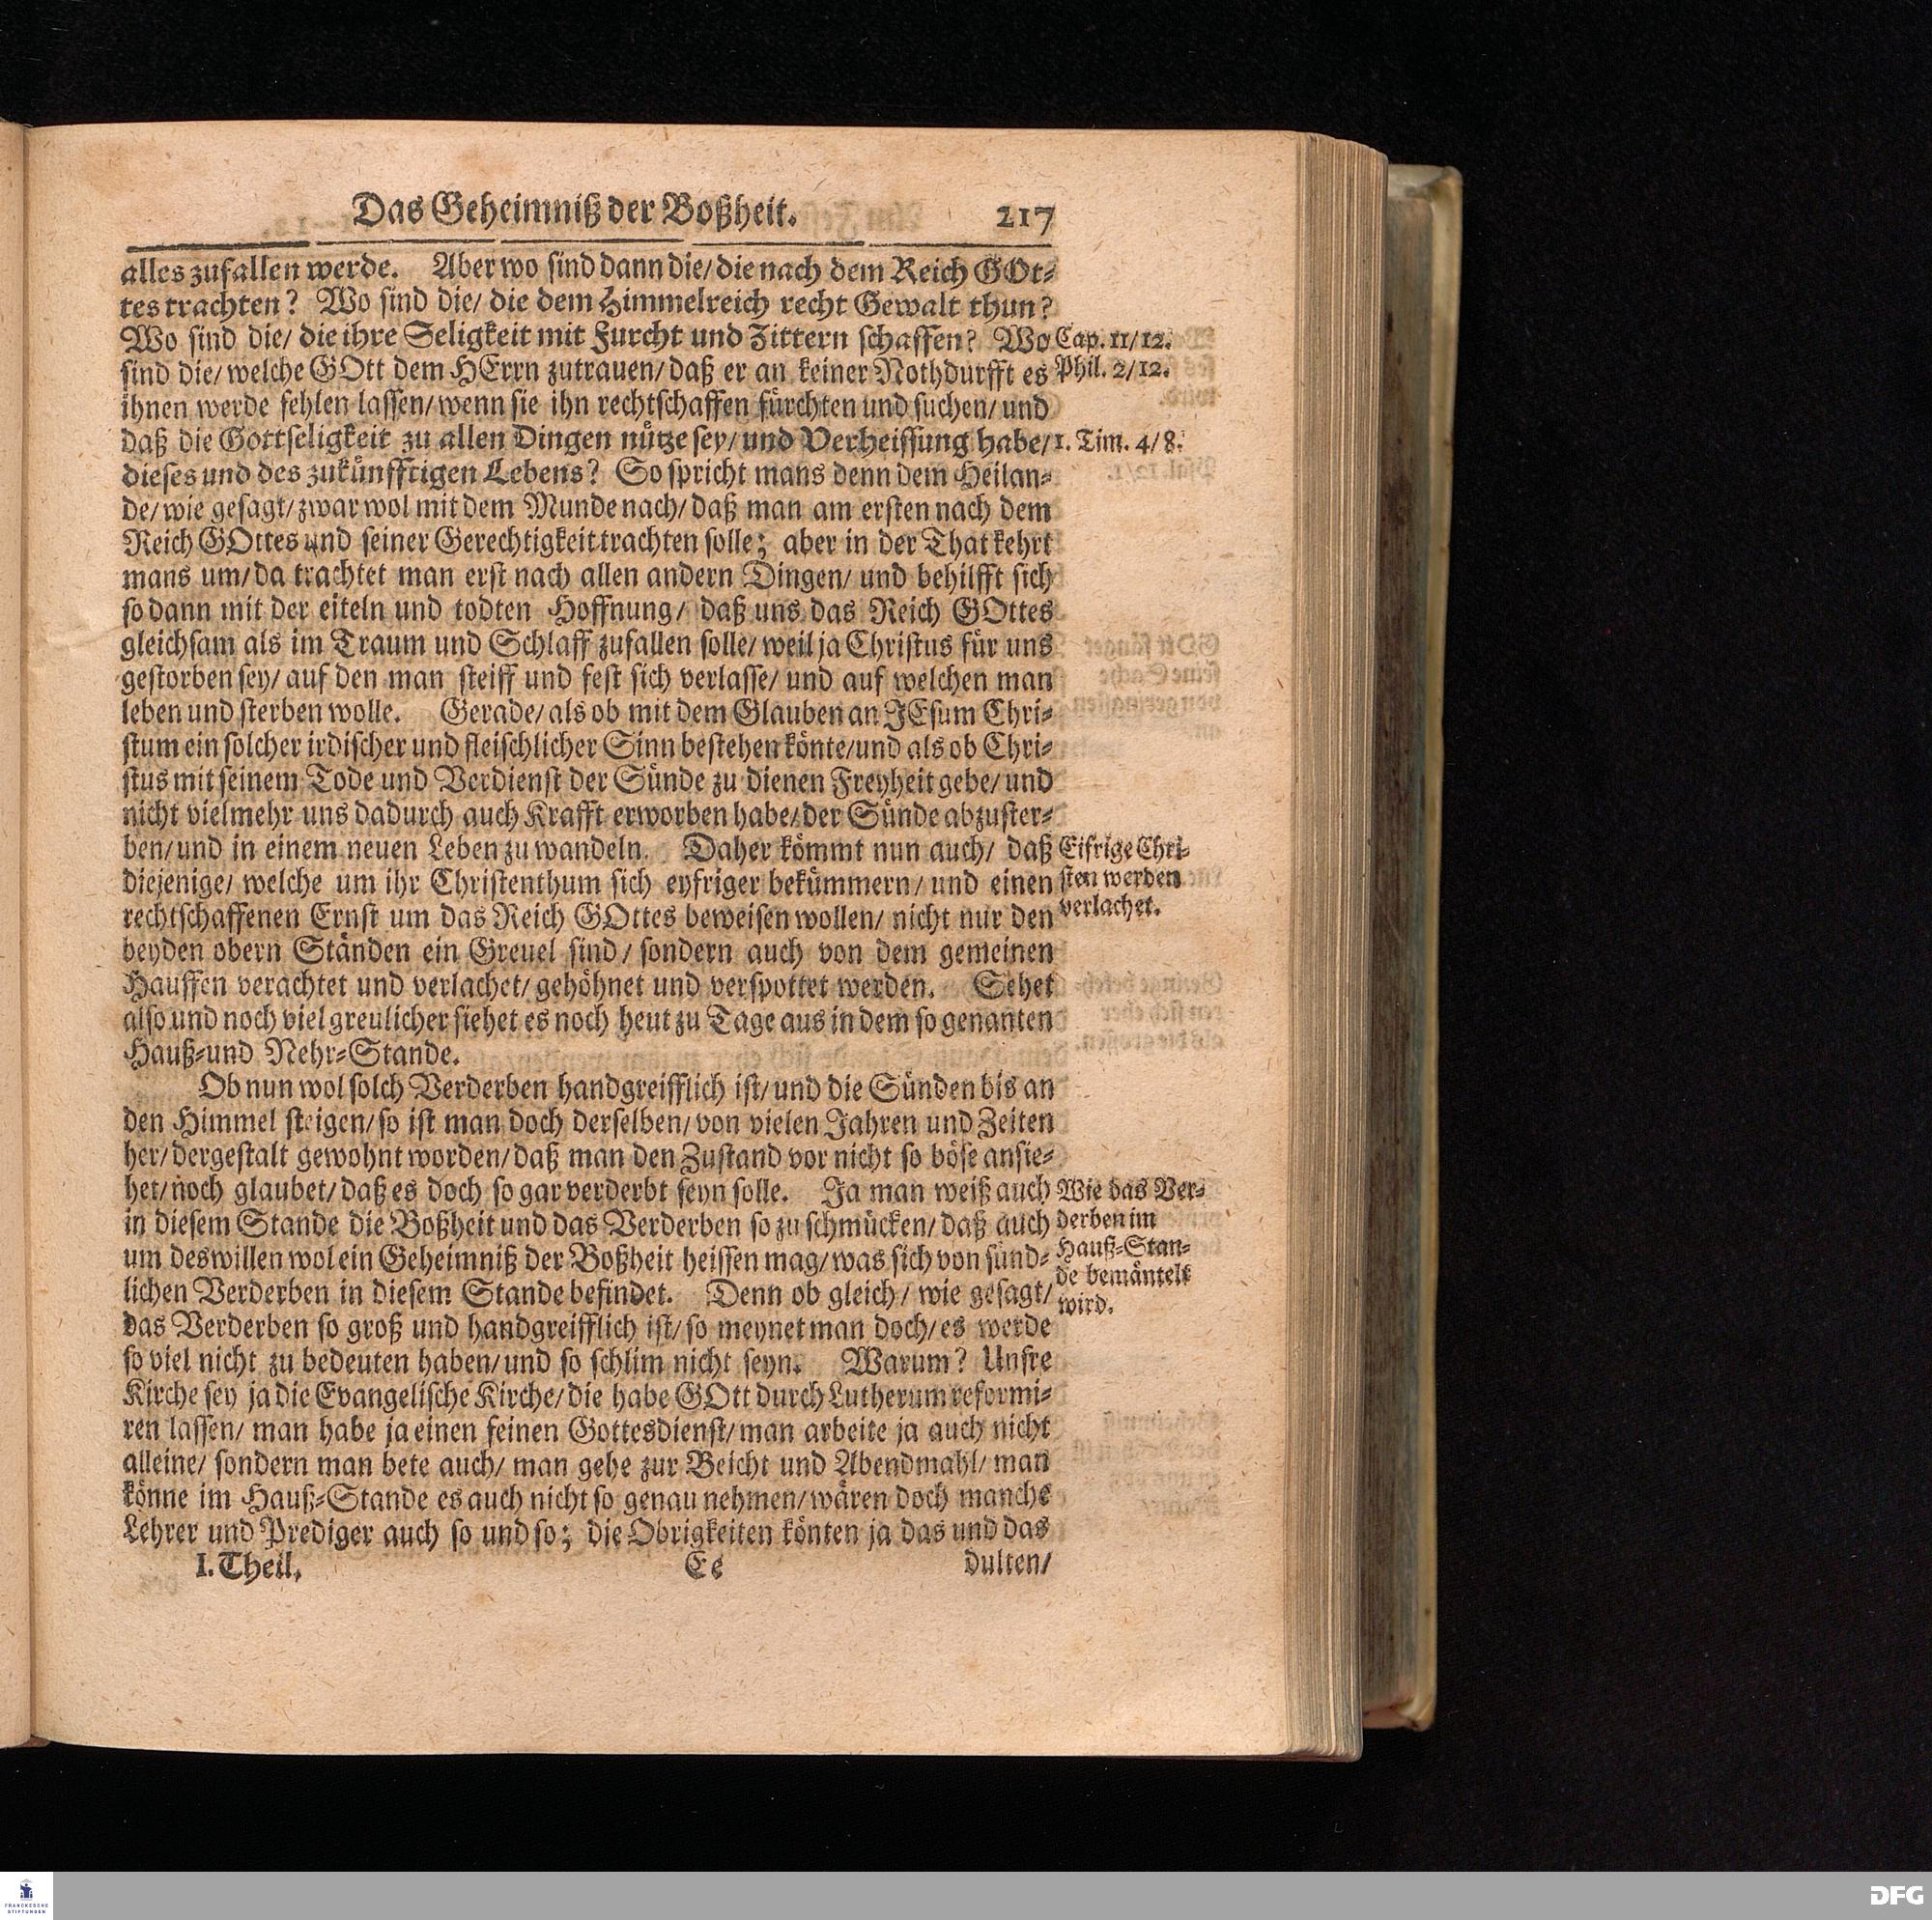 Das Geheimniß der Boßheit. 217
alles zufallen werde. Aber wo sind dann die/ die nach dem Reich GOt-
tes trachten? Wo sind die/ die dem Himmelreich recht Gewalt thun?
Wo sind die/ die ihre Seligkeit mit Furcht und Zittern schaffen? Wo
Cap. 11/12.
sind die/ welche GOtt dem HErrn zutrauen/ daß er an keiner Nothdurfft es
Phil. 2/12.
ihnen werde fehlen lassen/ wenn sie ihn rechtschaffen fürchten und suchen/ und
daß die Gottseligkeit zu allen Dingen nütze sey/ und Verheissung habe/
1. Tim. 4/8.
dieses und des zukünfftigen Lebens? So spricht mans denn dem Heilan-
de/ wie gesagt/ zwar wol mit dem Munde nach/ daß man am ersten nach dem
Reich GOttes und seiner Gerechtigkeit trachten solle; aber in der That kehrt
mans um/ da trachtet man erst nach allen andern Dingen/ und behilfft sich
so dann mit der eiteln und todten Hoffnung/ daß uns das Reich GOttes
gleichsam als im Traum und Schlaff zufallen solle/ weil ja Christus für uns
gestorben sey/ auf den man steiff und fest sich verlasse/ und auf welchen man
leben und sterben wolle. Gerade/ als ob mit dem Glauben an JEsum Chri-
stum ein solcher irdischer und fleischlicher Sinn bestehen könte/ und als ob Chri-
stus mit seinem Tode und Verdienst der Sünde zu dienen Freyheit gebe/ und
nicht vielmehr uns dadurch auch Krafft erworben habe/ der Sünde abzuster-
ben/ und in einem neuen Leben zu wandeln. Daher kömmt nun auch/ daß
diejenige/ welche um ihr Christenthum sich eyfriger bekümmern/ und einen
rechtschaffenen Ernst um das Reich GOttes beweisen wollen/ nicht nur den
Eifrige Chri-
sten werden
verlachet.
beyden obern Ständen ein Greuel sind/ sondern auch von dem gemeinen
Hauffen verachtet und verlachet/ gehöhnet und verspottet werden. Sehet
also und noch viel greulicher siehet es noch heut zu Tage aus in dem so genanten
Hauß-und Nehr-Stande.
Ob nun wol solch Verderben handgreifflich ist/ und die Sünden bis an
den Himmel steigen/ so ist man doch derselben/ von vielen Jahren und Zeiten
her/ dergestalt gewohnt worden/ daß man den Zustand vor nicht so böse ansie-
het/ noch glaubet/ daß es doch so gar verderbt seyn solle. Ja man weiß auch
in diesem Stande die Boßheit und das Verderben so zu schmücken/ daß auch
um deswillen wol ein Geheimniß der Boßheit heissen mag/ was sich von sünd-
lichen Verderben in diesem Stande befindet. Denn ob gleich/ wie gesagt/
Wie das Ver-
derben im
Hauß-Stan-
de bemäntelt
wird.
das Verderben so groß und handgreifflich ist/ so meynet man doch/ es werde
so viel nicht zu bedeuten haben/ und so schlim nicht seyn. Warum? Unsre
Kirche sey ja die Evangelische Kirche/ die habe GOtt durch Lutherum reformi-
ren lassen/ man habe ja einen feinen Gottesdienst/ man arbeite ja auch nicht
alleine/ sondern man bete auch/ man gehe zur Beicht und Abendmahl/ man
könne im Hauß-Stande es auch nicht so genau nehmen/ wären doch manche
Lehrer und Prediger auch so und so; die Obrigkeiten könten ja das und das
I. Theil. Ee dulten/
FRANCKESCHE
STIFTUNGEN
DFG